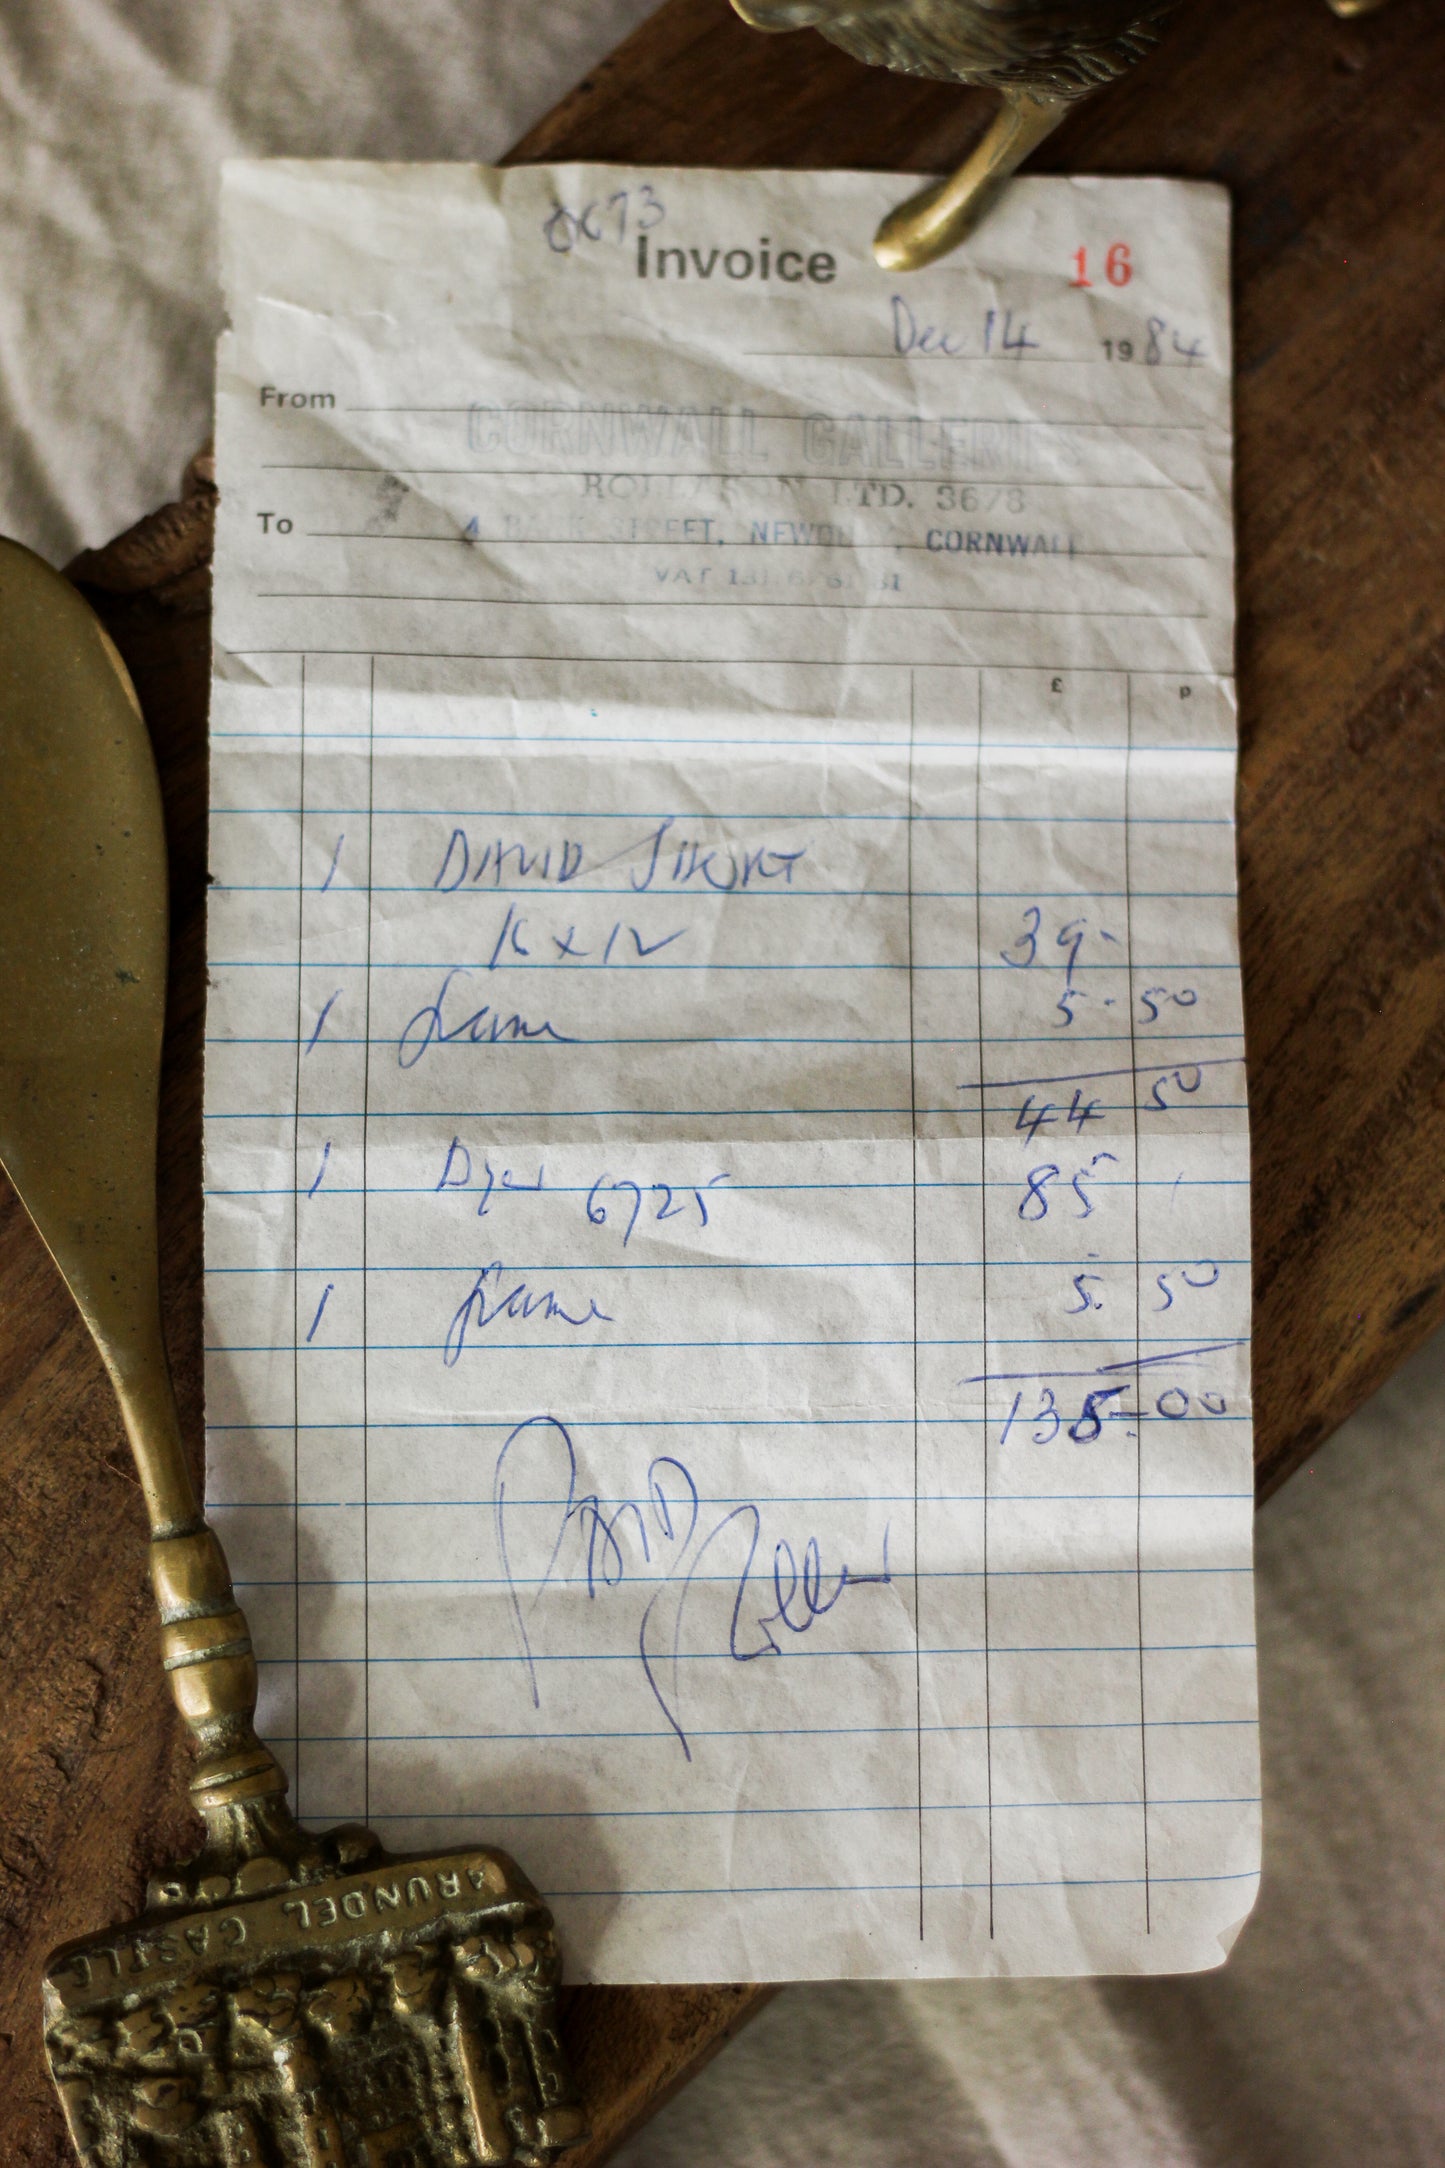 Invoice 16
Dec 14 1984
From
CORNWALL GALLERIES
LTD. 3678
To
4 STREET, CORNWALL
VAT
£ p
1 DAVID SHORT
16 x 12 39-
1 frame 5-50
44 50
1 Dyer 6725 85-
1 frame 5. 50
135-00
PAID
ARUNDEL CASTLE